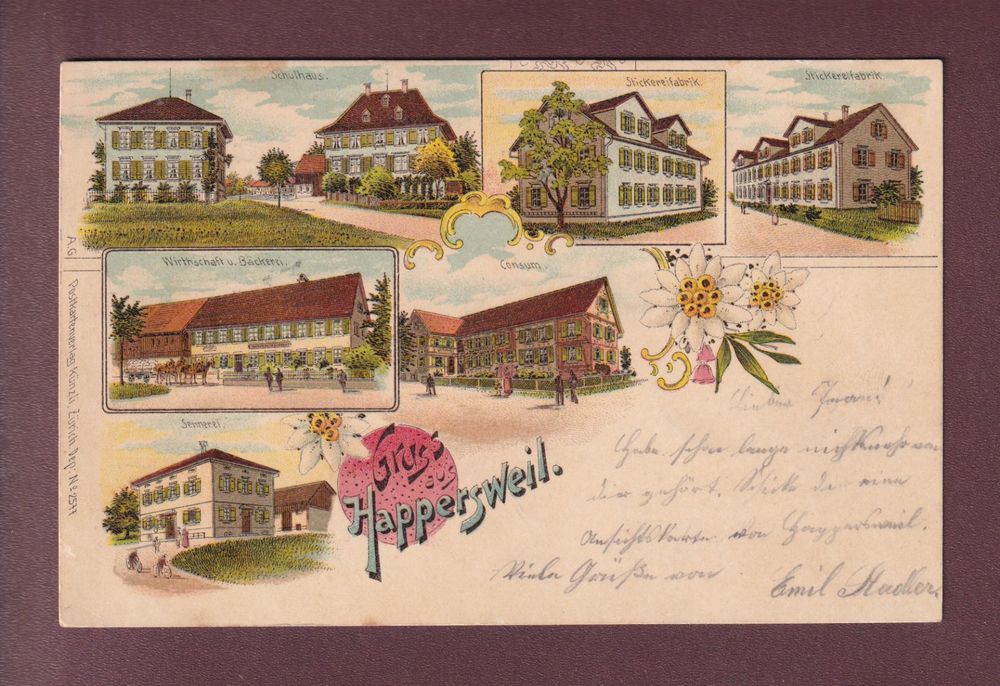 Schulhaus.
Stickereifabrik.
Stickereifabrik.
Wirthschaft u. Bäckerei.
Consum.
Sennerei.
Gruss
aus
Happersweil.
A.G. Postkartenverlag Künzli, Zürich, Dep. No 2577
Lieber
Habe schon lange nichts mehr von
dir gehört. Schicke dir eine
Ansichtskarte von Happersweil.
Viele Grüße von
Emil Stadler.